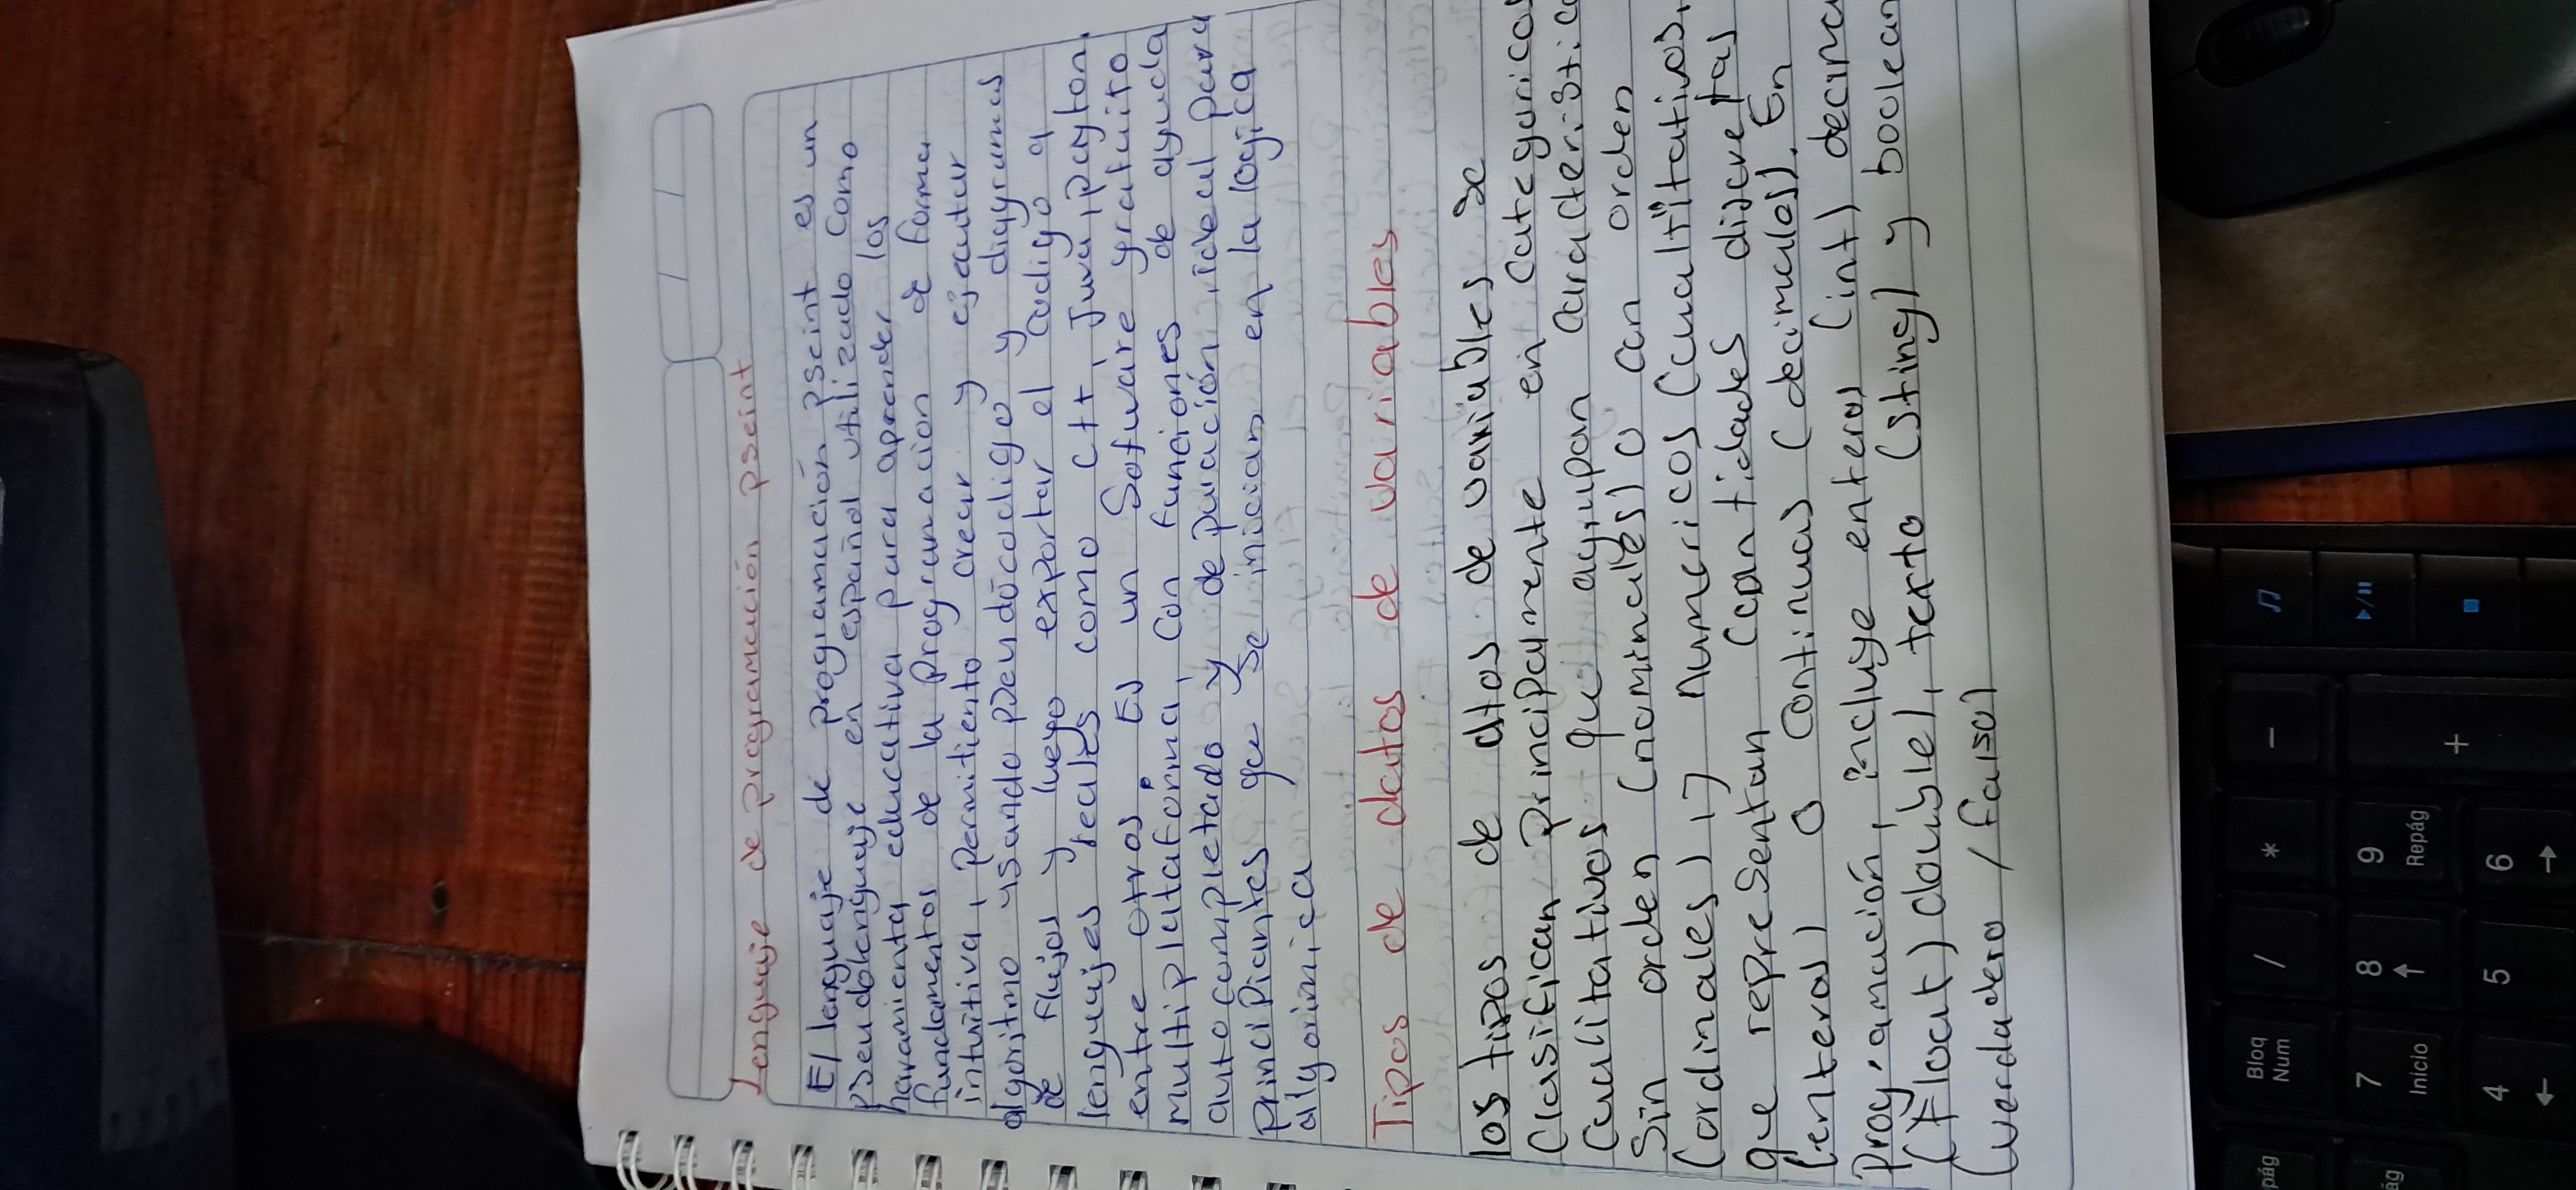 Lenguaje de programación pseint
El lenguaje de programación pseint es un
pseudolenguaje en español utilizado como
haramienta educativa para aprender los
fundamentos de la programación de forma
intuitiva, permitiento crear y ejecutar
algoritmo usando pseudocodigo y diagramas
de flujos y luego exportar el codigo a
lenguajes reales como C++, Java, payton,
entre otros. Es un Software gratuito
multiplataforma, con funciones de ayuda
autocompletado y depuración, ideal para
principiantes que se inician en la logica
algorimica
Tipos de datos de variables
los tipos de dtos de variables se
clasifican principalmente en categoricos
cualitativos que agrupan caracteristica
sin orden (nominales) o con orden
(ordinales), y numericos (cualtitativos,
que representan cantidades discretas
(enteros) o continuas (decimales). En
programación, incluye enteros (int) decima
(float) double), texto (sting) y boolean
(verdadero / falso)
Bloq
Num
/
*
-
7
Inicio
8
9
Repág
+
4
5
6
pág
ág